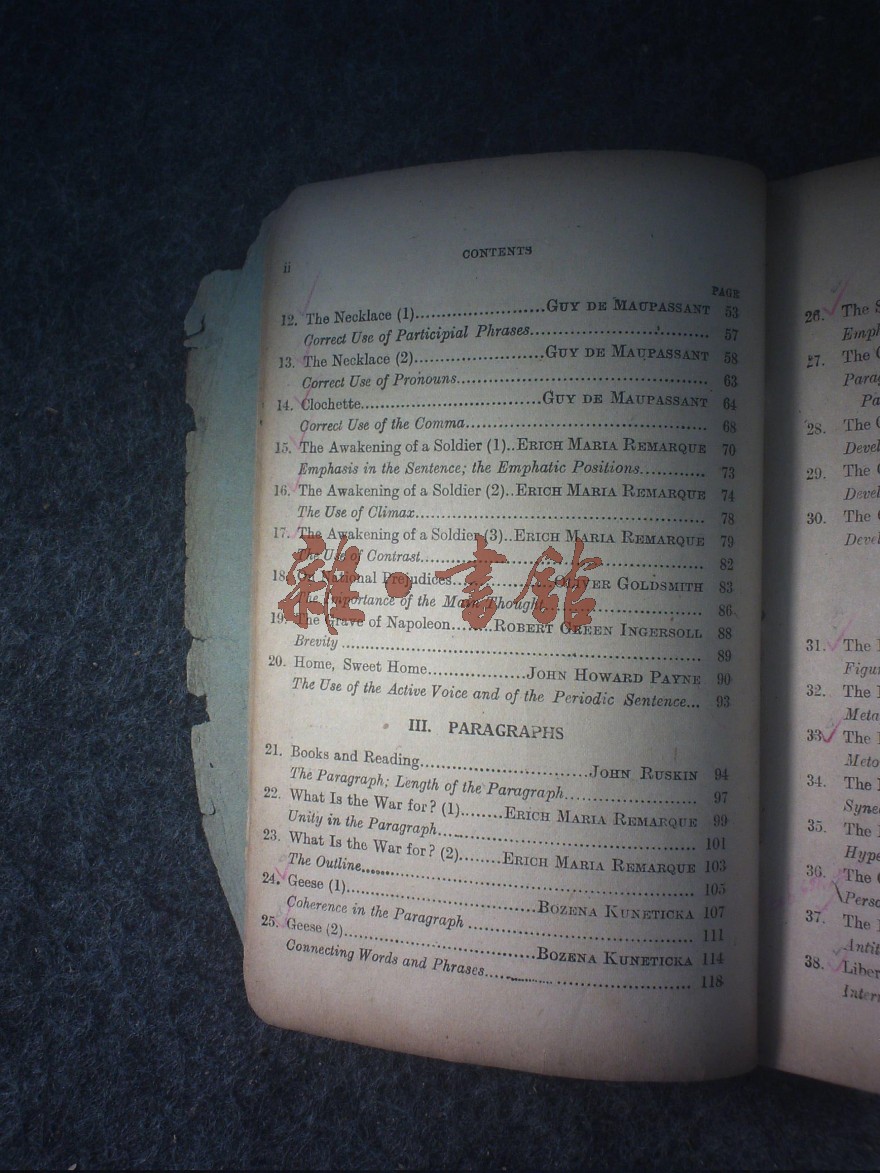 ii
CONTENTS
PAGE
12. The Necklace (1)......................GUY DE MAUPASSANT 53
Correct Use of Participial Phrases.............................. 57
13. The Necklace (2)......................GUY DE MAUPASSANT 58
Correct Use of Pronouns.......................................... 63
14. Clochette...............................GUY DE MAUPASSANT 64
Correct Use of the Comma........................................ 68
15. The Awakening of a Soldier (1)..ERICH MARIA REMARQUE 70
Emphasis in the Sentence; the Emphatic Positions........... 73
16. The Awakening of a Soldier (2)..ERICH MARIA REMARQUE 74
The Use of Climax................................................. 78
17. The Awakening of a Soldier (3)..ERICH MARIA REMARQUE 79
The Use of Contrast................................................ 82
18. On National Prejudices.................OLIVER GOLDSMITH 83
The Importance of the Main Thought.......................... 86
19. The Grave of Napoleon.......ROBERT GREEN INGERSOLL 88
Brevity ............................................................. 89
20. Home, Sweet Home.................JOHN HOWARD PAYNE 90
The Use of the Active Voice and of the Periodic Sentence... 93
III. PARAGRAPHS
21. Books and Reading.............................JOHN RUSKIN 94
The Paragraph; Length of the Paragraph....................... 97
22. What Is the War for? (1).......ERICH MARIA REMARQUE 99
Unity in the Paragraph............................................ 101
23. What Is the War for? (2).......ERICH MARIA REMARQUE 103
The Outline......................................................... 105
24. Geese (1)................................BOZENA KUNETICKA 107
Coherence in the Paragraph ...................................... 111
25. Geese (2)................................BOZENA KUNETICKA 114
Connecting Words and Phrases.................................. 118
雜·書館
26. The
27. The
28. The
29. The
30. The
31. The
32. The
33. The
34. The
35. The
36. The
37. The
38.